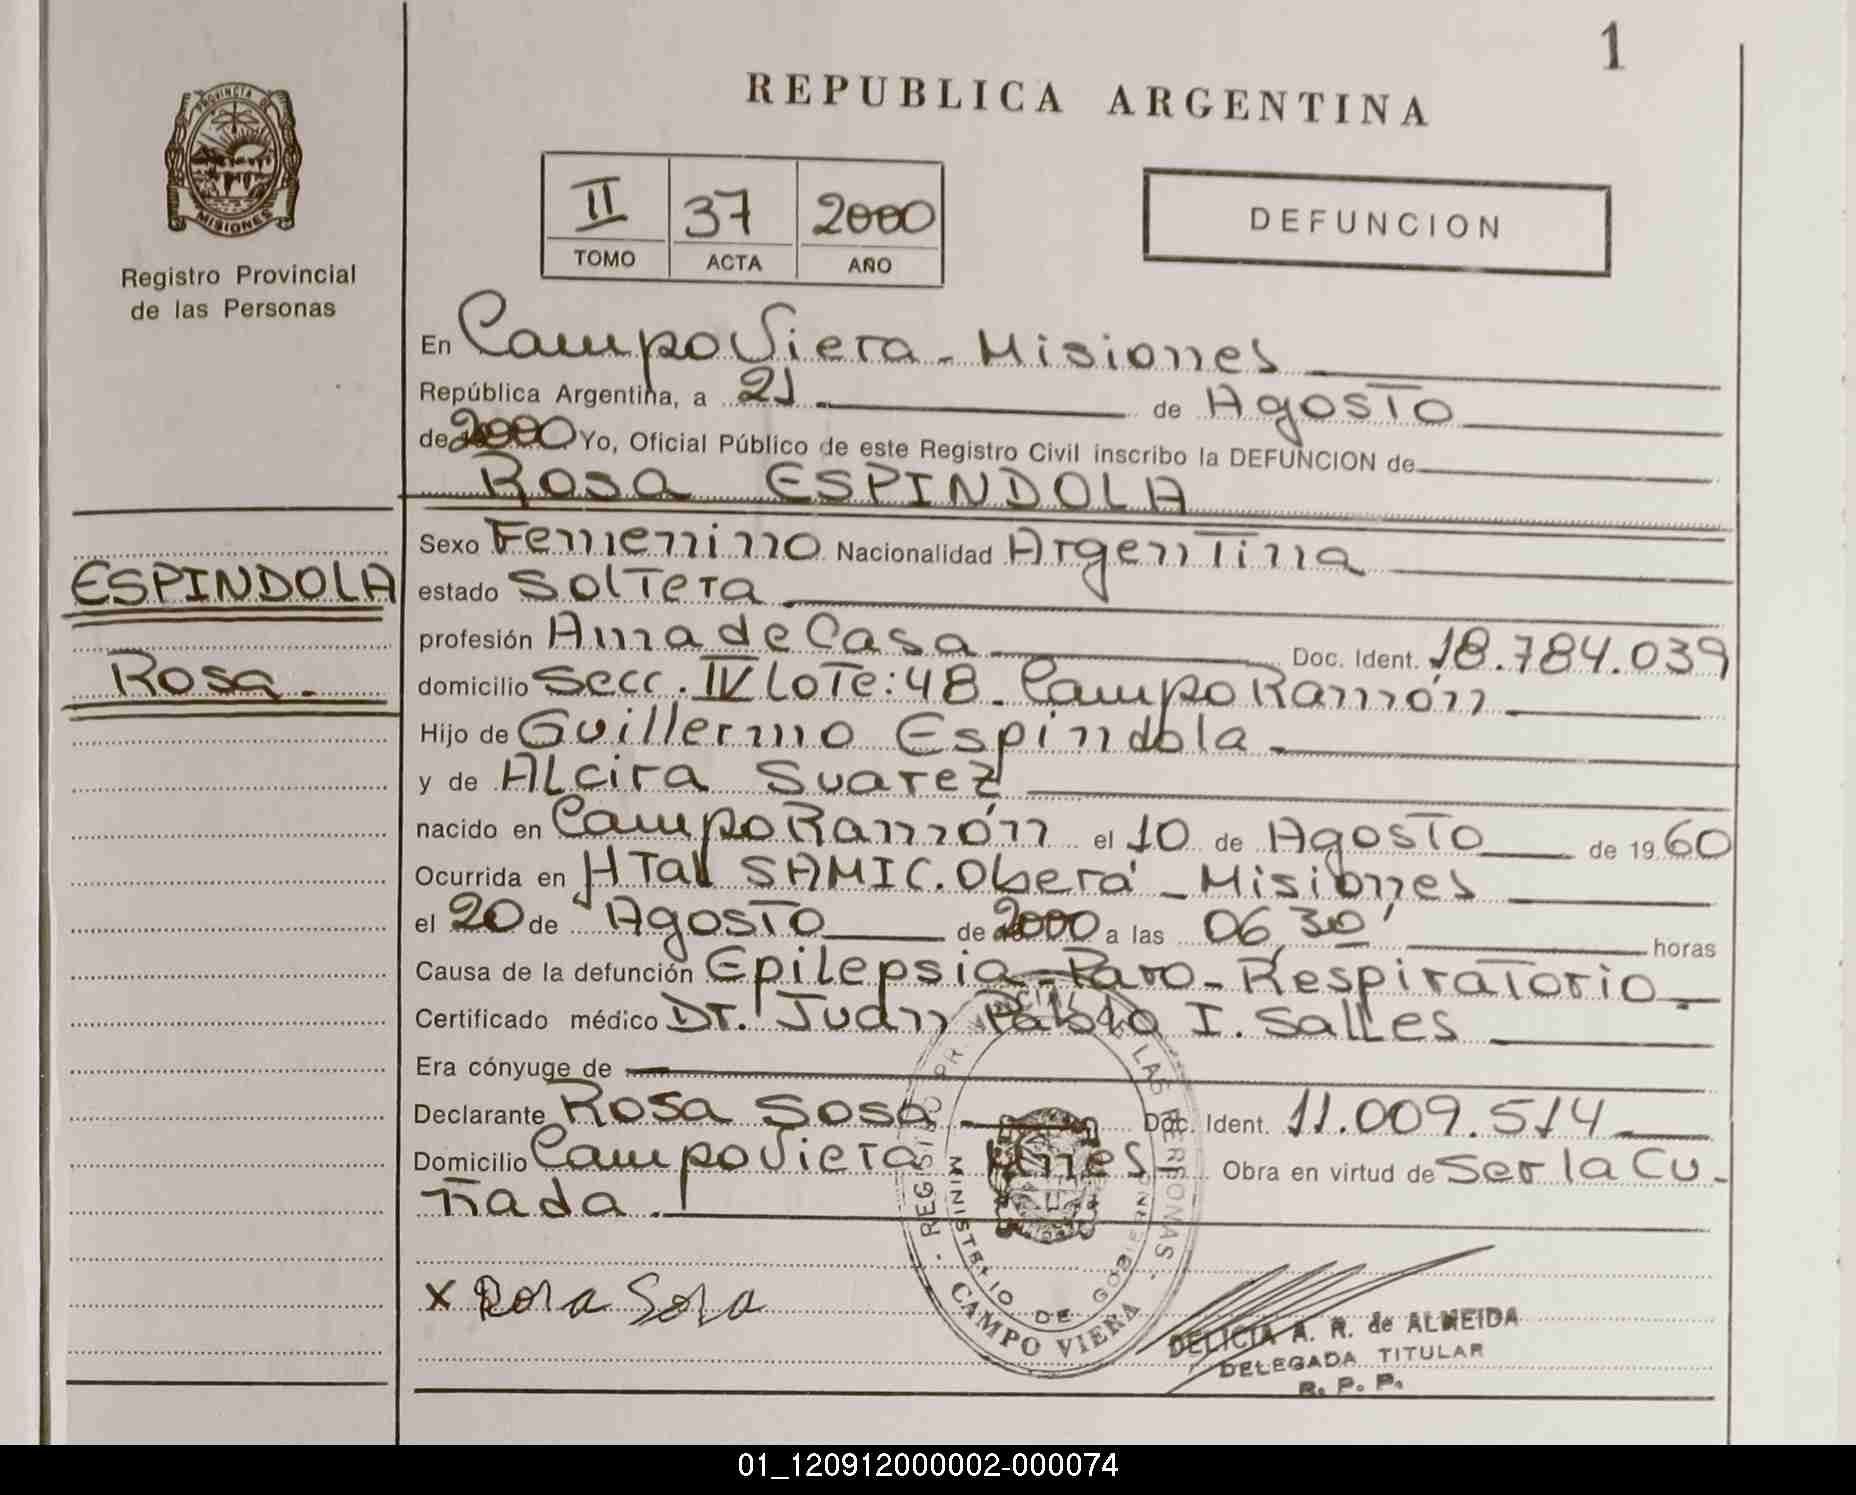 1
REPUBLICA ARGENTINA
PROVINCIA DE
MISIONES
Registro Provincial
de las Personas
II 37 2000
TOMO ACTA AÑO
DEFUNCION
En Campo Viera - Misiones
República Argentina, a 21 de Agosto
de 2000 Yo, Oficial Público de este Registro Civil inscribo la DEFUNCION de
Rosa ESPINDOLA
ESPINDOLA
Rosa.
Sexo Femenino Nacionalidad Argentina
estado Soltera
profesión Ama de Casa Doc. Ident. 18.784.039
domicilio Secc. IV Lote: 48 - Campo Ramón
Hijo de Guillermo Espíndola
y de Alcira Suarez
nacido en Campo Ramón el 10 de Agosto de 1960
Ocurrida en HTal SAMIC. Oberá - Misiones
el 20 de Agosto de 2000 a las 06,30' horas
Causa de la defunción Epilepsia - Paro - Respiratorio
Certificado médico Dr. Juan Pablo I. Salles
Era cónyuge de
Declarante Rosa Sosa Doc. Ident. 11.009.514
Domicilio Campo Viera Mnes Obra en virtud de Ser la Cu-
ñada.
x Rosa Sosa
MINISTERIO DE GOBIERNO
CAMPO VIERA
DELICIA A. R. de ALMEIDA
DELEGADA TITULAR
R. P. P.
01_120912000002-000074